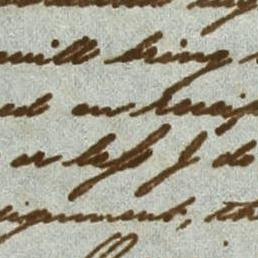 will bring
ed on receip
or loss I do
signment, th